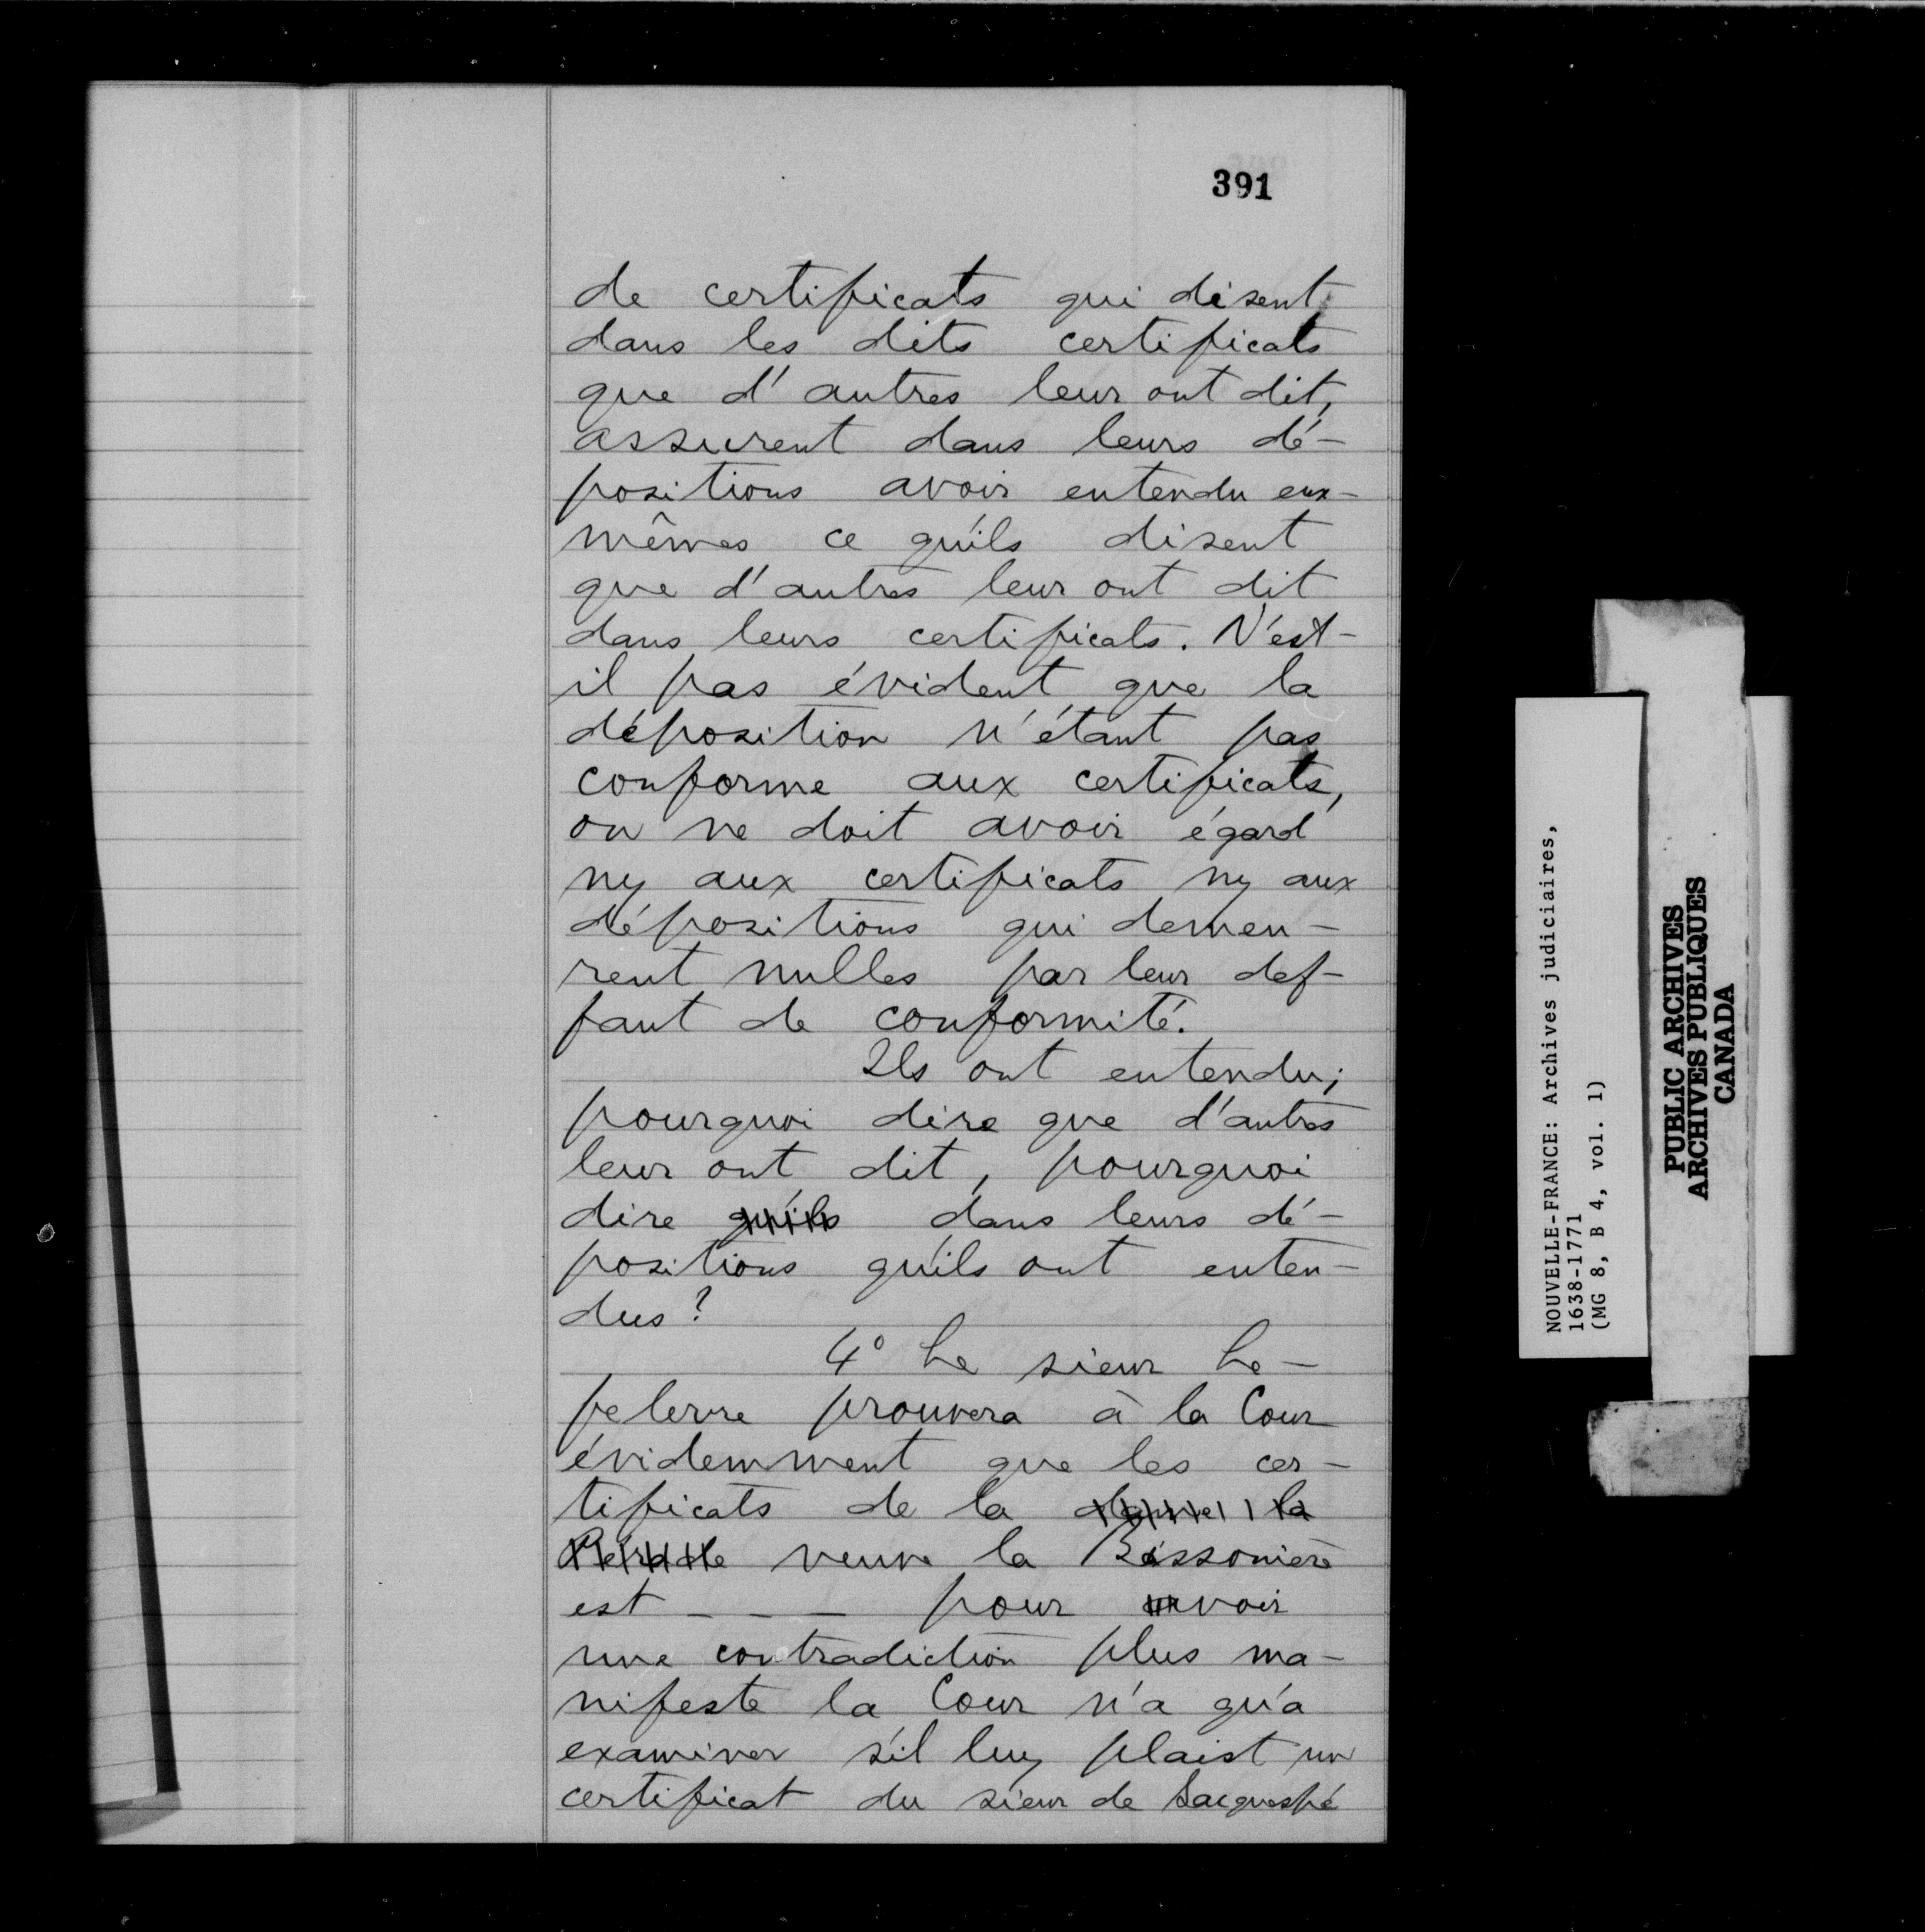 391
de certificats qui disent
dans les dits certificats
que d'autres leur ont dit,
assurent dans leurs dé-
positions avoir entendu eux-
mêmes ce qu'ils disent
que d'autres leur ont dit
dans leurs certificats. N'est-
il pas évident que la
déposition n'étant pas
conforme aux certificats,
on ne doit avoir égard
ny aux certificats ny aux
dépositions qui demeu-
rent nulles par leur def-
faut de conformité.
Ils ont entendu;
pourquoi dire que d'autres
leur ont dit, pourquoi
dire qu'ils dans leurs dé-
positions qu'ils ont enten-
dus?
4° Le sieur Le-
pelerre prouvera à la Cour
évidemment que les cer-
tificats de la la
veuve la Bissonière
est - - - pour voir
une contradiction plus ma-
nifeste la Cour n'a qu'a
examiner s'il luy plaist un
certificat du sieur de Sacquespé
NOUVELLE-FRANCE: Archives judiciaires,
1638-1771
(MG 8, B 4, vol. 1)
PUBLIC ARCHIVES
ARCHIVES PUBLIQUES
CANADA